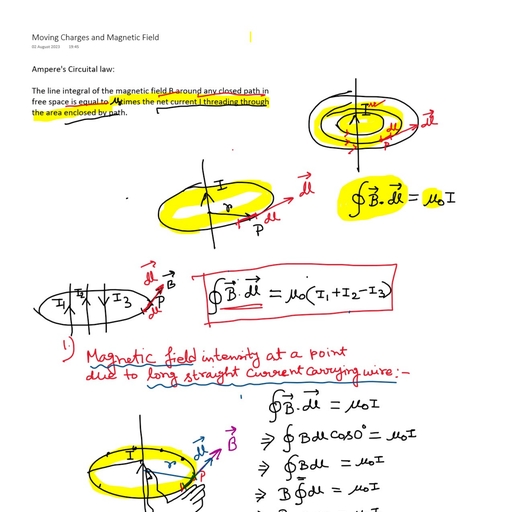 Moving Charges and Magnetic Field
02 August 2023 19:45
Ampere's Circuital law:
The line integral of the magnetic field B around any closed path in
free space is equal to μ₀ times the net current I threading through
the area enclosed by path.
I
dl
P
dl
∮B⃗.dl⃗ = μ₀I
I
r
dl
P
dl
I₁ I₂ I₃
dl
B
P
dl
∮B⃗.dl⃗ = μ₀(I₁+I₂-I₃)
1.) Magnetic field intensity at a point
due to long straight current carrying wire:-
∮B⃗.dl⃗ = μ₀I
⇒ ∮Bdl cos0° = μ₀I
⇒ ∮Bdl = μ₀I
⇒ B∮dl = μ₀I
I
r
dl
B
P